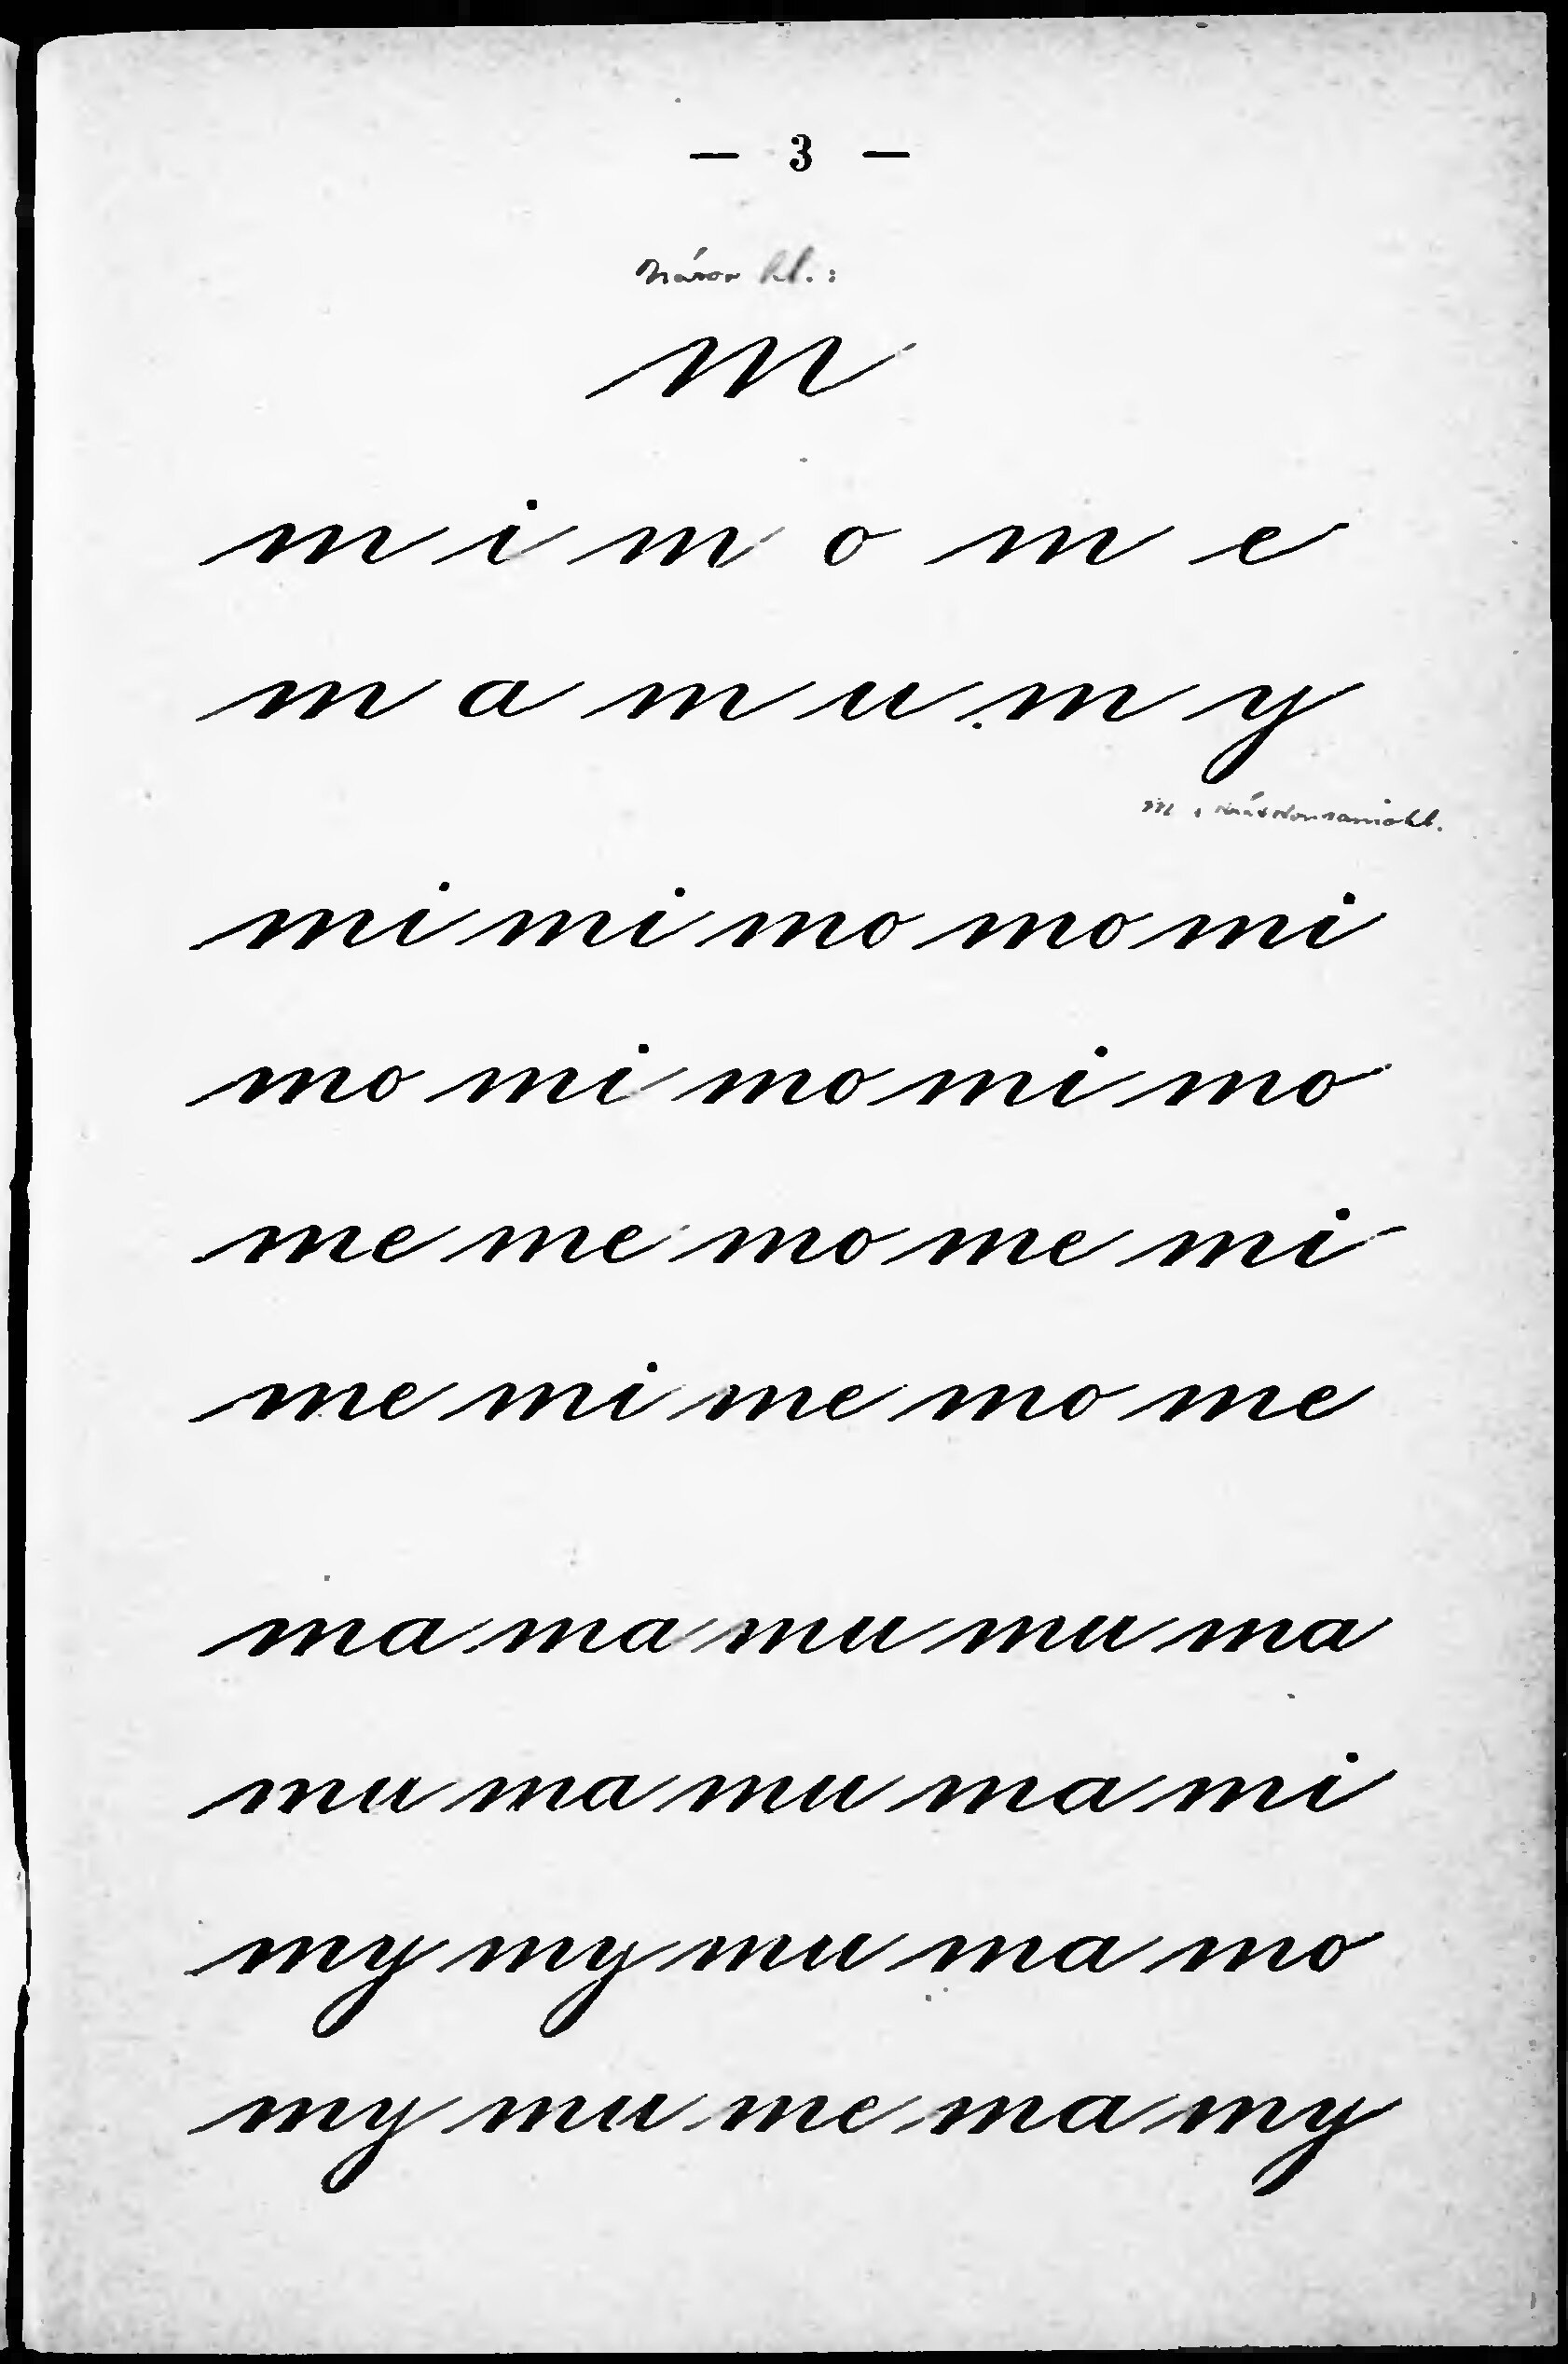 — 3 —
Názor hl.:
m
m i m o m e
m a m u m y
m
mi mi mo mo mi
mo mi mo mi mo
me me mo me mi
me mi me mo me
ma ma mu mu ma
mu ma mu ma mi
my my mu ma mo
my mu me ma my